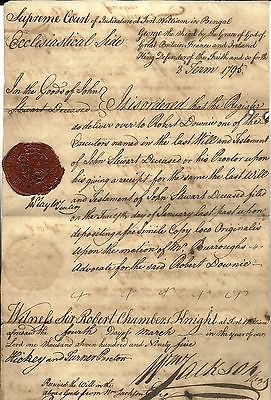 Supreme Court of Judicature at Fort William in Bengal
Ecclesiastical Side
George the third by the Grace of God of
Great Britain France and Ireland
King Defender of the Faith and so forth
2 Term 1795
In the Goods of John
Stewart Deceased
It is ordered that the Register
do deliver over to Robert Downie one of the
Executors named in the Last Will and Testament
of John Stewart Deceased or his Proctor upon
his giving a receipt for the same the Last Will
and Testament of John Stewart Deceased filed
on the day of January last past upon
depositing a fac Simile Copy Loco Originalis
Upon the motion of Mr Burroughs
Advocate for the said Robert Downie
Witness Sir Robert Chambers Knight at Fort William
aforesaid the fourth Day of March in the year of our
Lord one thousand Seven hundred and Ninety five
Hickey and Turner Proctor
Wm Jackson
Reg
Received the Will in the
above Goods from Mr Jackson